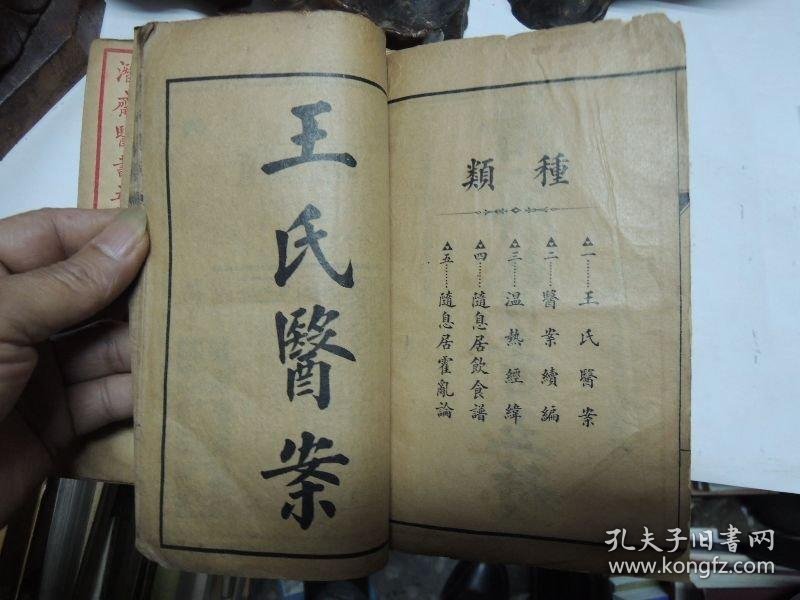 種類
一……王氏醫案
二……醫案續編
三……温熱經緯
四……隨息居飲食譜
五……隨息居霍亂論
王氏醫案
潛齋醫書五
孔夫子旧书网
www.kongfz.com